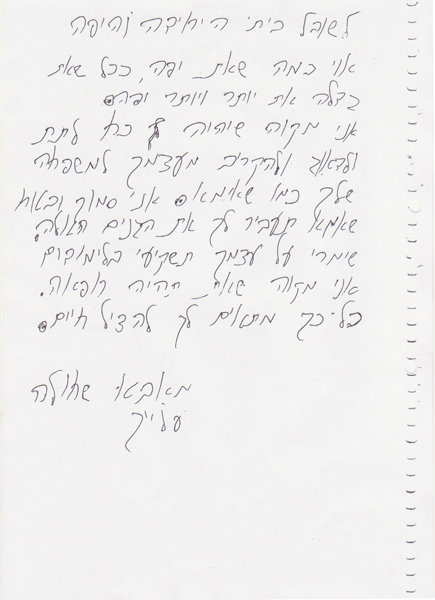 לשובל בית׳ היחידה והיפה
אני כמה שאת יפה, ככל שאת
גדלה את יותר ויותר יפה.
אני מקווה שיהיה לך כח לתת
ולדאוג ולהקרים מעצמך למשפחה
שלך כמו שאימא. אני סמוך ובטוח
שאמא תעביר לך את הגנים האלה.
שימרי על עצמך תשקיעי בלימודים
אני מקווה שאת תהיה רופאה.
כל כך מתאים לך להציל חיים.
מאבא שחולה
עלייך